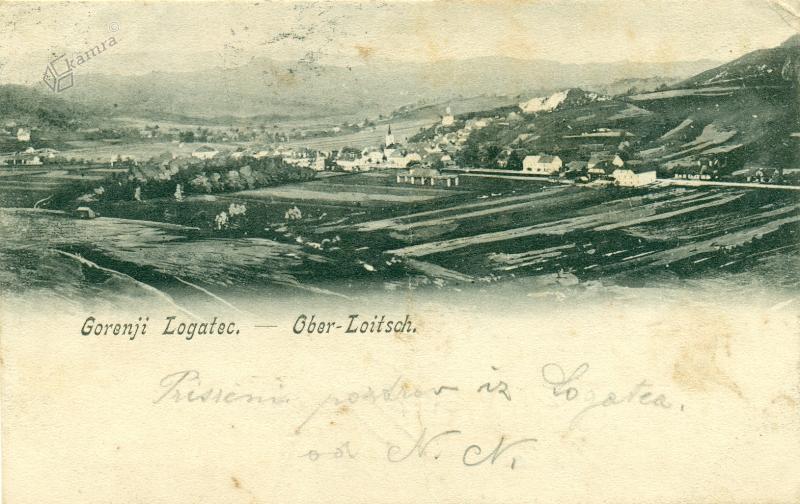 kamra ©
Gorenji Logatec. — Ober-Loitsch.
Prisrčni pozdrav iz Logatca.
od N. N.